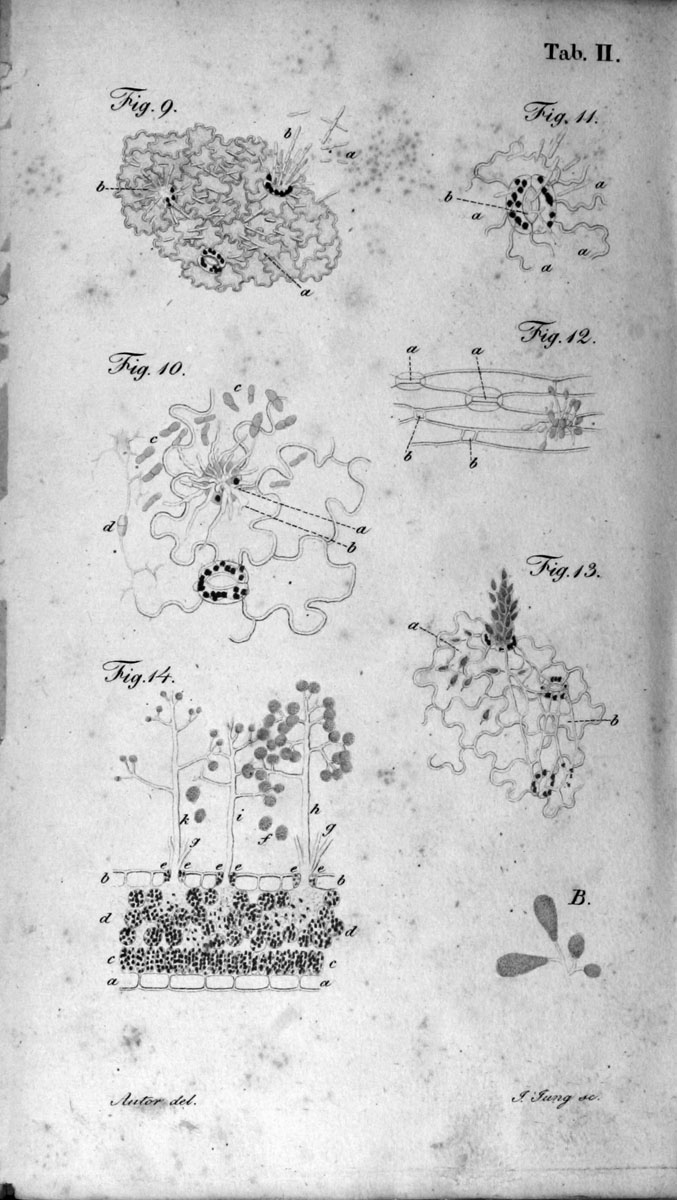 Tab. II.
Fig. 9.
b
a
b
a
Fig. 11.
a
b
a
a
a
Fig. 10.
c
c
d
a
b
Fig. 12.
a
a
b
b
Fig. 13.
a
b
Fig. 14.
k
i
h
f
g
g
e e e e e e
b b
d d
c c
a a
B.
Autor del.
J. Jung sc.